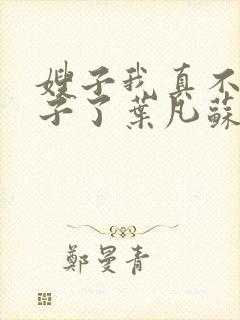 嫂子我真不
子了葉凡蘇
鄭曼青